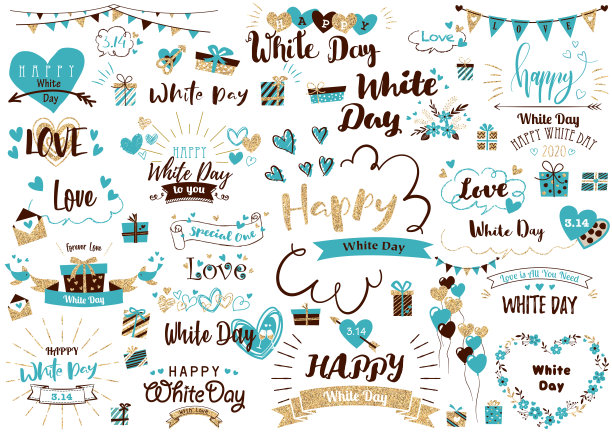 3.14
HAPPY
White
Day
LOVE
Love
Forever Love
White Day
HAPPY
White Day
3.14
White Day
HAPPY
White Day
to you
Special One
Love
White Day
HAPPY
White Day
WITH LOVE
HAPPY
White Day
White
Day
Happy
White Day
3.14
HAPPY
White Day
Love
LOVE
happy
White Day
HAPPY WHITE DAY
2020
Love
White Day
3.14
Love is All You Need
WHITE DAY
White
Day